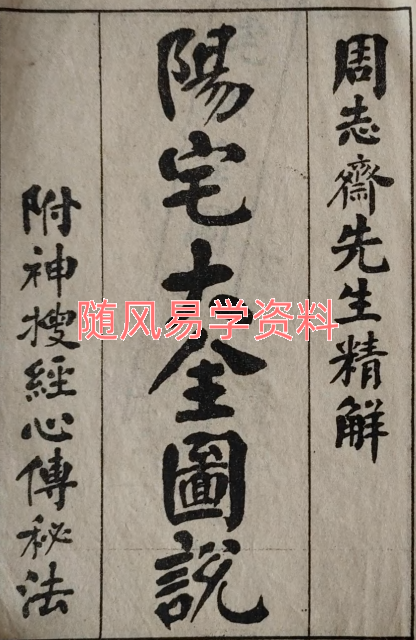 周志齋先生精解
陽宅大全圖說
附神搜經心傳秘法
随风易学资料